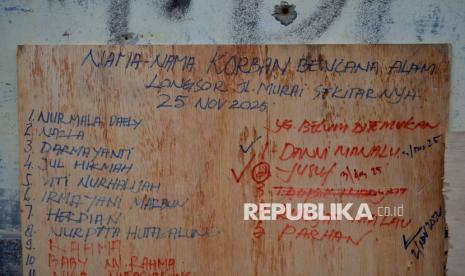 NAMA-NAMA KORBAN BENCANA ALAM
LONGSOR JL. MURAI SEKITARNYA
25 NOV 2025
1 NURMALA DAELY
2 NAZLA
3 DARMAYANTI
4 JUL HIKMAH
5 SITI NURHALIJAH
6 IRMAYANI MARBUN
7 HERDIAN
8 NURPITTA HUTAGALUNG
9 RAHMA
10 BABY NI. RAHMA
YG. BELUM DITEMUKAN
DANNI MANALU
YUSUF
PARHAN
REPUBLIKA.co.id